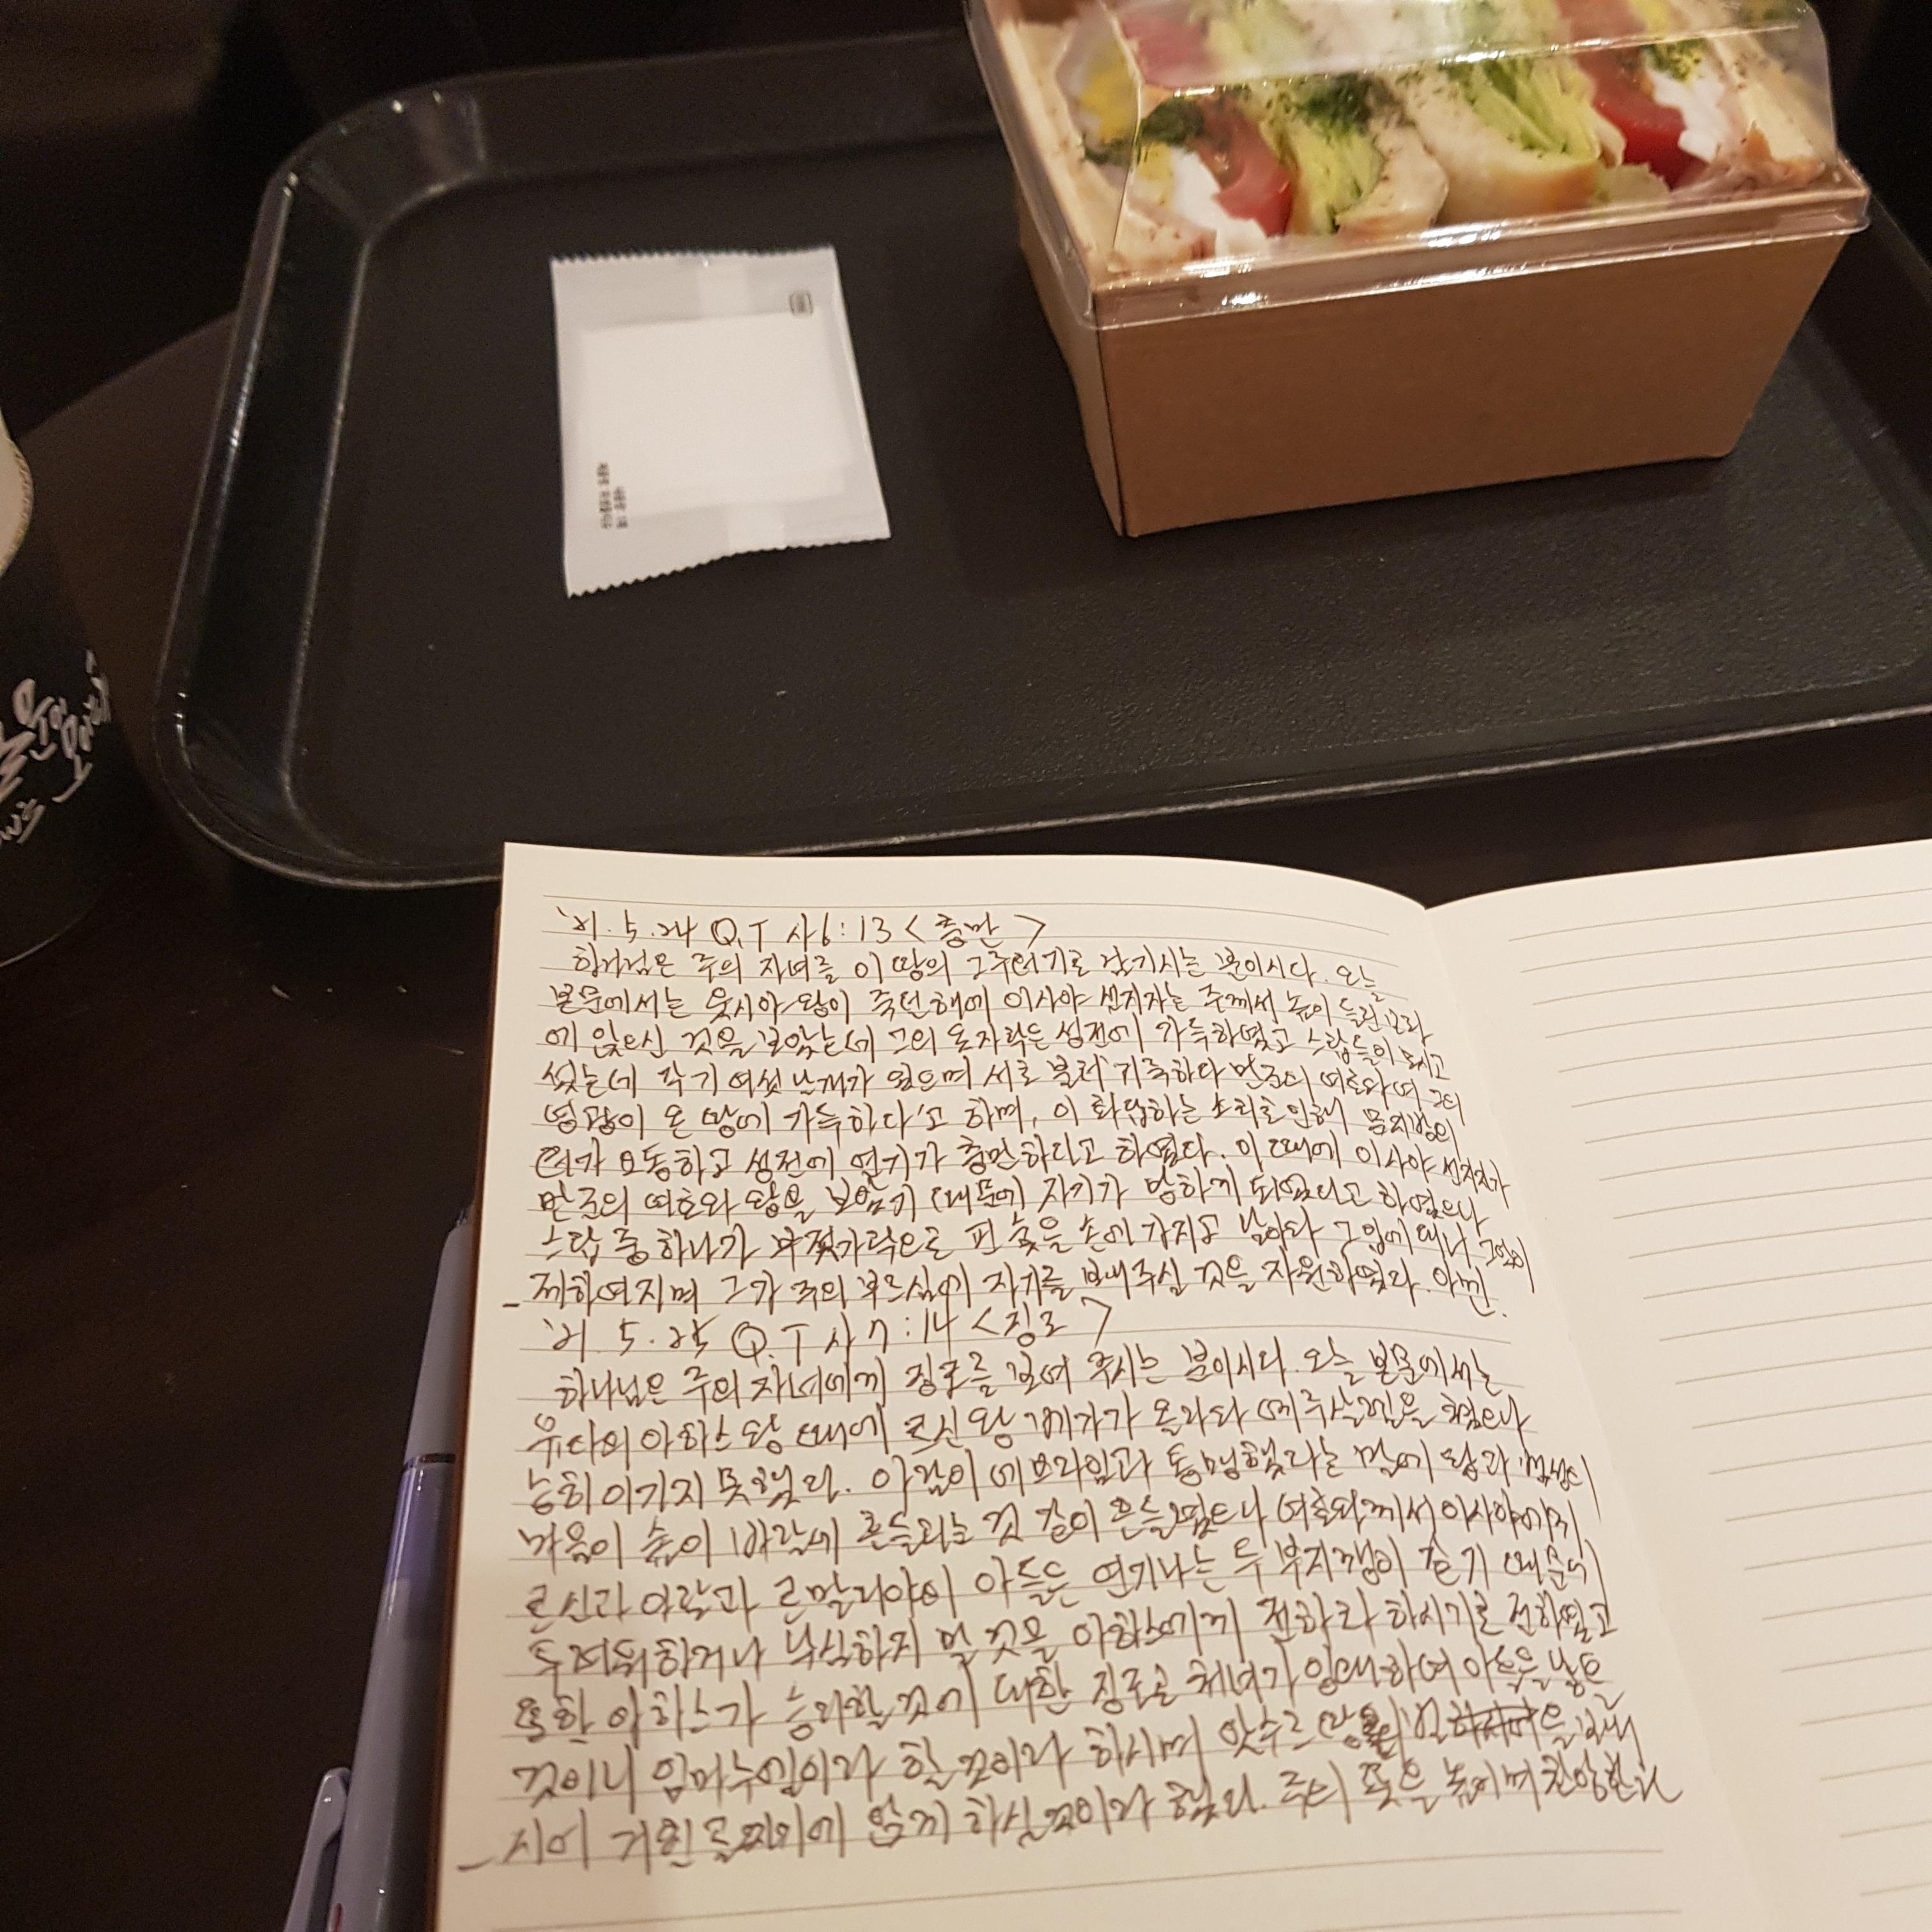 '21. 5. 24 Q.T 사6:13 <충만>
하나님은 주의 자녀를 이 땅의 그루터기로 남기시는 분이시다. 오늘
본문에서는 웃시야 왕이 죽던 해에 이사야 선지자는 주께서 높이 들린 보좌
에 앉으신 것을 보았는데 그의 옷자락은 성전에 가득하였고 스랍들이 모시고
섰는데 각기 여섯 날개가 있으며 서로 불러 '거룩하다 만군의 여호와여 그의
영광이 온 땅에 가득하다'고 하며, 이 화답하는 소리로 인해 문지방의
터가 요동하고 성전에 연기가 충만하다고 하였다. 이 때에 이사야 선지자가
만군의 여호와 왕을 보았기 때문에 자기가 망하게 되었다고 하였으나
스랍 중 하나가 부젓가락으로 핀 숯을 손에 가지고 날아와 그 입에 대니 그 악이
제하여지며 그가 주의 부르심에 자기를 보내주실 것을 자원하였다. 아멘.
'21. 5. 25 Q.T 사7:14 <징조>
하나님은 주의 자녀에게 징조를 보여 주시는 분이시다. 오늘 본문에서는
유다의 아하스 왕 때에 르신 왕 베가가 올라와 예루살렘을 쳤으나
능히 이기지 못했다. 아람이 에브라임과 동맹했다는 말에 왕과 백성의
마음이 숲이 바람에 흔들리는 것 같이 흔들렸으나 여호와께서 이사야에게
르신과 아람과 르말리야의 아들은 연기나는 두 부지깽이 같기 때문에
두려워하거나 낙심하지 말 것을 아하스에게 전하라 하시기로 전하였고
또한 아하스가 승리할 것에 대한 징조로 처녀가 잉태하여 아들을 낳을
것이니 임마누엘이라 할 것이라 하시며 앗수르 왕의 을 보내
시어 거민 에 하실 것이라 했다. 주의 을 높이며 찬양한다